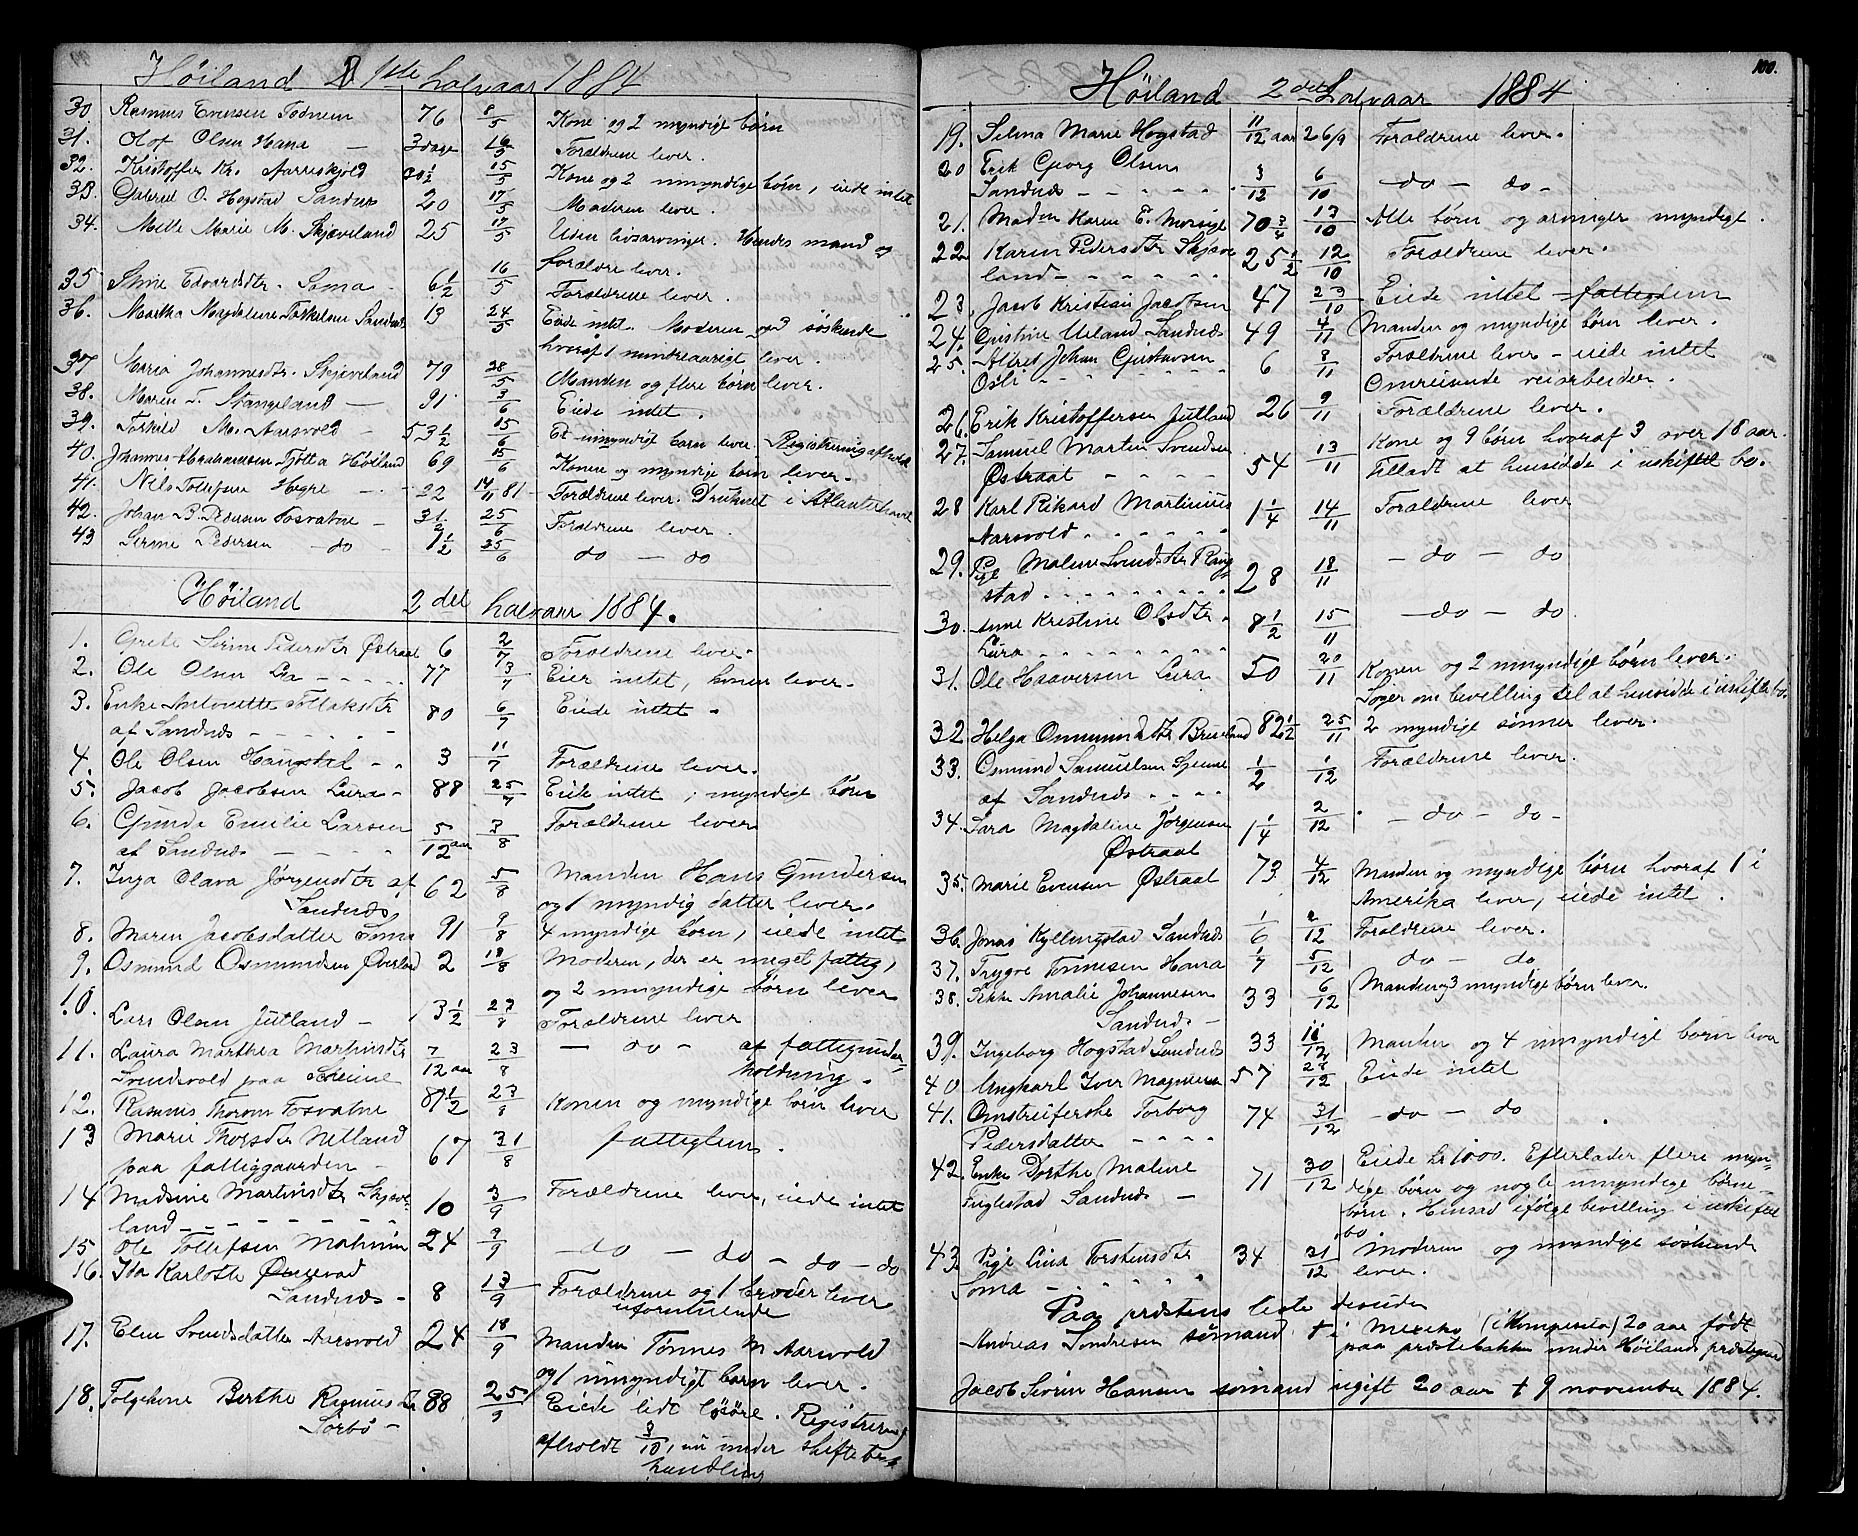 Høiland 1ste halvaar 1884
30. Rasmus Evensen Todnem 76 8/5 Kone og 2 myndige børn
31. Olof Olsen Hana — 3 dage 16/5 Forældrene lever.
32. Kristoffer Kr. Aarreskjold 30 1/2 15/5 Kone og 2 umyndige børn, eiede intet
33. Gabriel O. Hogstad Sandnes 20 17/5 Moderen lever.
34. Mette Marie M. Skjæveland 25 17/5 Uden livsarvinger. Hendes mand og
forældre lever.
35 Stine Edvardsdtr. Soma 6 1/2 16/5 Forældrene lever.
36. Martha Magdalene Torkelsen Sandnes 13 24/5 Eiede intet. Moderen og 3 søskende
hvoraf 1 mindreaarigt lever.
37 Maria Johannesdtr. Skjæveland 79 28/5 Manden og flere børn lever.
38. Maren T. Stangeland — 91 3/6 Eiede intet.
39. Torkild M. Aarsvold — 53 1/2 15/6 Et umyndigt barn lever. Registrering afholdt
40. Johannes Abrahamsen Tjøtta Høiland 69 15/6 Konen og myndige børn lever.
41. Nils Tollefsen Hegre — 22 14/11 81 Forældrene lever. Druknet i Atlanterhavet
42. Johan B. Pedersen Fosvatne — 3 1/2 25/6 Forældrene lever.
43 Serine Pedersen — do — 1 1/2 25/6 do — do
Høiland 2 det halvaar 1884.
1. Grete Serine Pedersdtr Østraat 6 2/7 Forældrene lever.
2. Ole Olsen Lia — 77 3/7 Eier intet, konen lever.
3. Enke Antonette Tollaksdtr 80 6/7 Eiede intet.
af Sandnes
4. Ole Olsen Haugstad 3 11/7 Forældrene lever.
5. Jacob Jacobsen Lura — 88 25/7 Eiede intet, myndige børn
6. Gunda Emilie Larsen 5/12 aar 3/8 Forældrene lever
af Sandnes
7. Inga Olava Jørgensdtr af 62 5/8 Manden Hans Gundersen
Sandnes og 1 myndig datter lever.
8. Maren Jacobsdatter Soma 91 9/8 4 myndige børn, eiede intet
9. Osmund Osmundsen Øverland 2 18/8 Moderen, der er meget fattig,
og 2 umyndige børn lever
10. Lars Olsen Jutland — 3 1/2 23/8 Forældrene lever
11. Laura Marthea Martinsdtr 7/12 aar 23/8 — do — af fattigunder-
Svendsvold paa Skeiene holdning.
12. Rasmus Thorsen Fosvatne 87 1/2 23/8 Konen og myndige børn lever
13 Marie Thorsdtr Netland 67 31/8 fattiglem.
paa fattiggaarden
14 Madsine Martinsdtr Skjæve- 10 3/9 Forældrene lever, eiede intet
land
15 Ole Tollefsen Malmin 24 9/9 — do — do — do — do
16. Ida Karlotte Østervad
Sandnes — 8 13/9 Forældrene og 1 broder lever
uformuende
17. Elen Svendsdatter Aarsvold 24 18/9 Manden Tønnes M Aarsvold
og 1 umyndigt barn lever.
18. Følgekone Berthe Rasmusdtr 88 25/9 Eiede lidt løsøre. Registrering
Sørbø — afholdt 3/10, nu under skiftebe-
handling
100.
Høiland 2 det halvaar 1884
19. Selma Marie Hogstad 11/12 aar 26/9 Forældrene lever.
20 Erik Georg Olsen
Sandnes 3/12 6/10 — do — do —
21. Madm Karen E. Norsige 70 3/4 13/10 Alle børn og arvinger myndige.
22. Karen Pedersdtr Skjæve 25 1/2 12/10 Forældrene lever.
land
23. Jacob Kristian Jacobsen 47 23/10 Eiede intet — fattiglem
24. Gjestine Ueland Sandnes 49 4/11 Manden og myndige børn lever.
25. Alfred Johan Gustavsen 6 8/11 Forældrene lever — eiede intet
Osli Omreisende veiarbeider.
26. Erik Kristoffersen Jutland 26 9/11 Forældrene lever.
27. Samuel Martin Svendsen 54 13/11 Kone og 9 børn hvoraf 3 over 18 aar.
Østraat Tilladt at hensidde i uskiftet bo.
28 Karl Rikard Martinius 1 1/4 14/11 Forældrene lever
Aarsvold
29. Pige Maline Svendsdtr Ring- 28 18/11 — do — do
stad
30. Anne Kristine Olsdtr. 8 1/2 15/11 — do — do
Lura
31. Ole Haaversen Lura 50 20/11 Konen og 2 umyndige børn lever.
Søger om bevilling til at hensidde i uskiftet bo.
32 Helga Osmundsdtr Brueland 82 1/2 25/11 2 myndige sønner lever.
33. Osmund Samuelsen 1/2 1/12 Forældrene lever.
af Sandnes
34. Sara Magdaline Jørgensen 1 1/4 2/12 — do — do —
Østraat
35. Marie Evensen Østraat 73 4/12 Manden og myndige børn hvoraf 1 i
Amerika lever, eiede intet.
36. Jonas Kyllingstad Sandnes 1/6 2/12 Forældrene lever.
37. Trygve Tønnesen Hana 1/7 5/12 do — do
38. Amalie Johannesen 33 6/12 Manden og 3 myndige børn lever.
Sandnes —
39. Ingeborg Hogstad Sandnes 33 16/12 Manden og 4 umyndige børn lever
40 Ungkarl Iver Magnussen 57 28/12 Eiede intet
41. Omstreiferske Torborg 74 31/12 — do — do
Pedersdatter
42. Enke Dorthe Maline 71 30/12 Eiede kr 1000. Efterlader flere myn-
Inglestad Sandnes — dige børn og nogle umyndige børne-
børn. Hensad ifølge bevilling i uskiftet
bo.
43. Pige Lina Torstensdtr 34 21/12 Moderen og myndige søskende
Soma — lever.
Paa prestens liste desuden
Andreas Sondresen sømand † i Mexiko 20 aar født
paa prestebakken under Høilands prestegaard
Jacob Severin Hansen sømand ugift 20 aar † 9 november 1884.